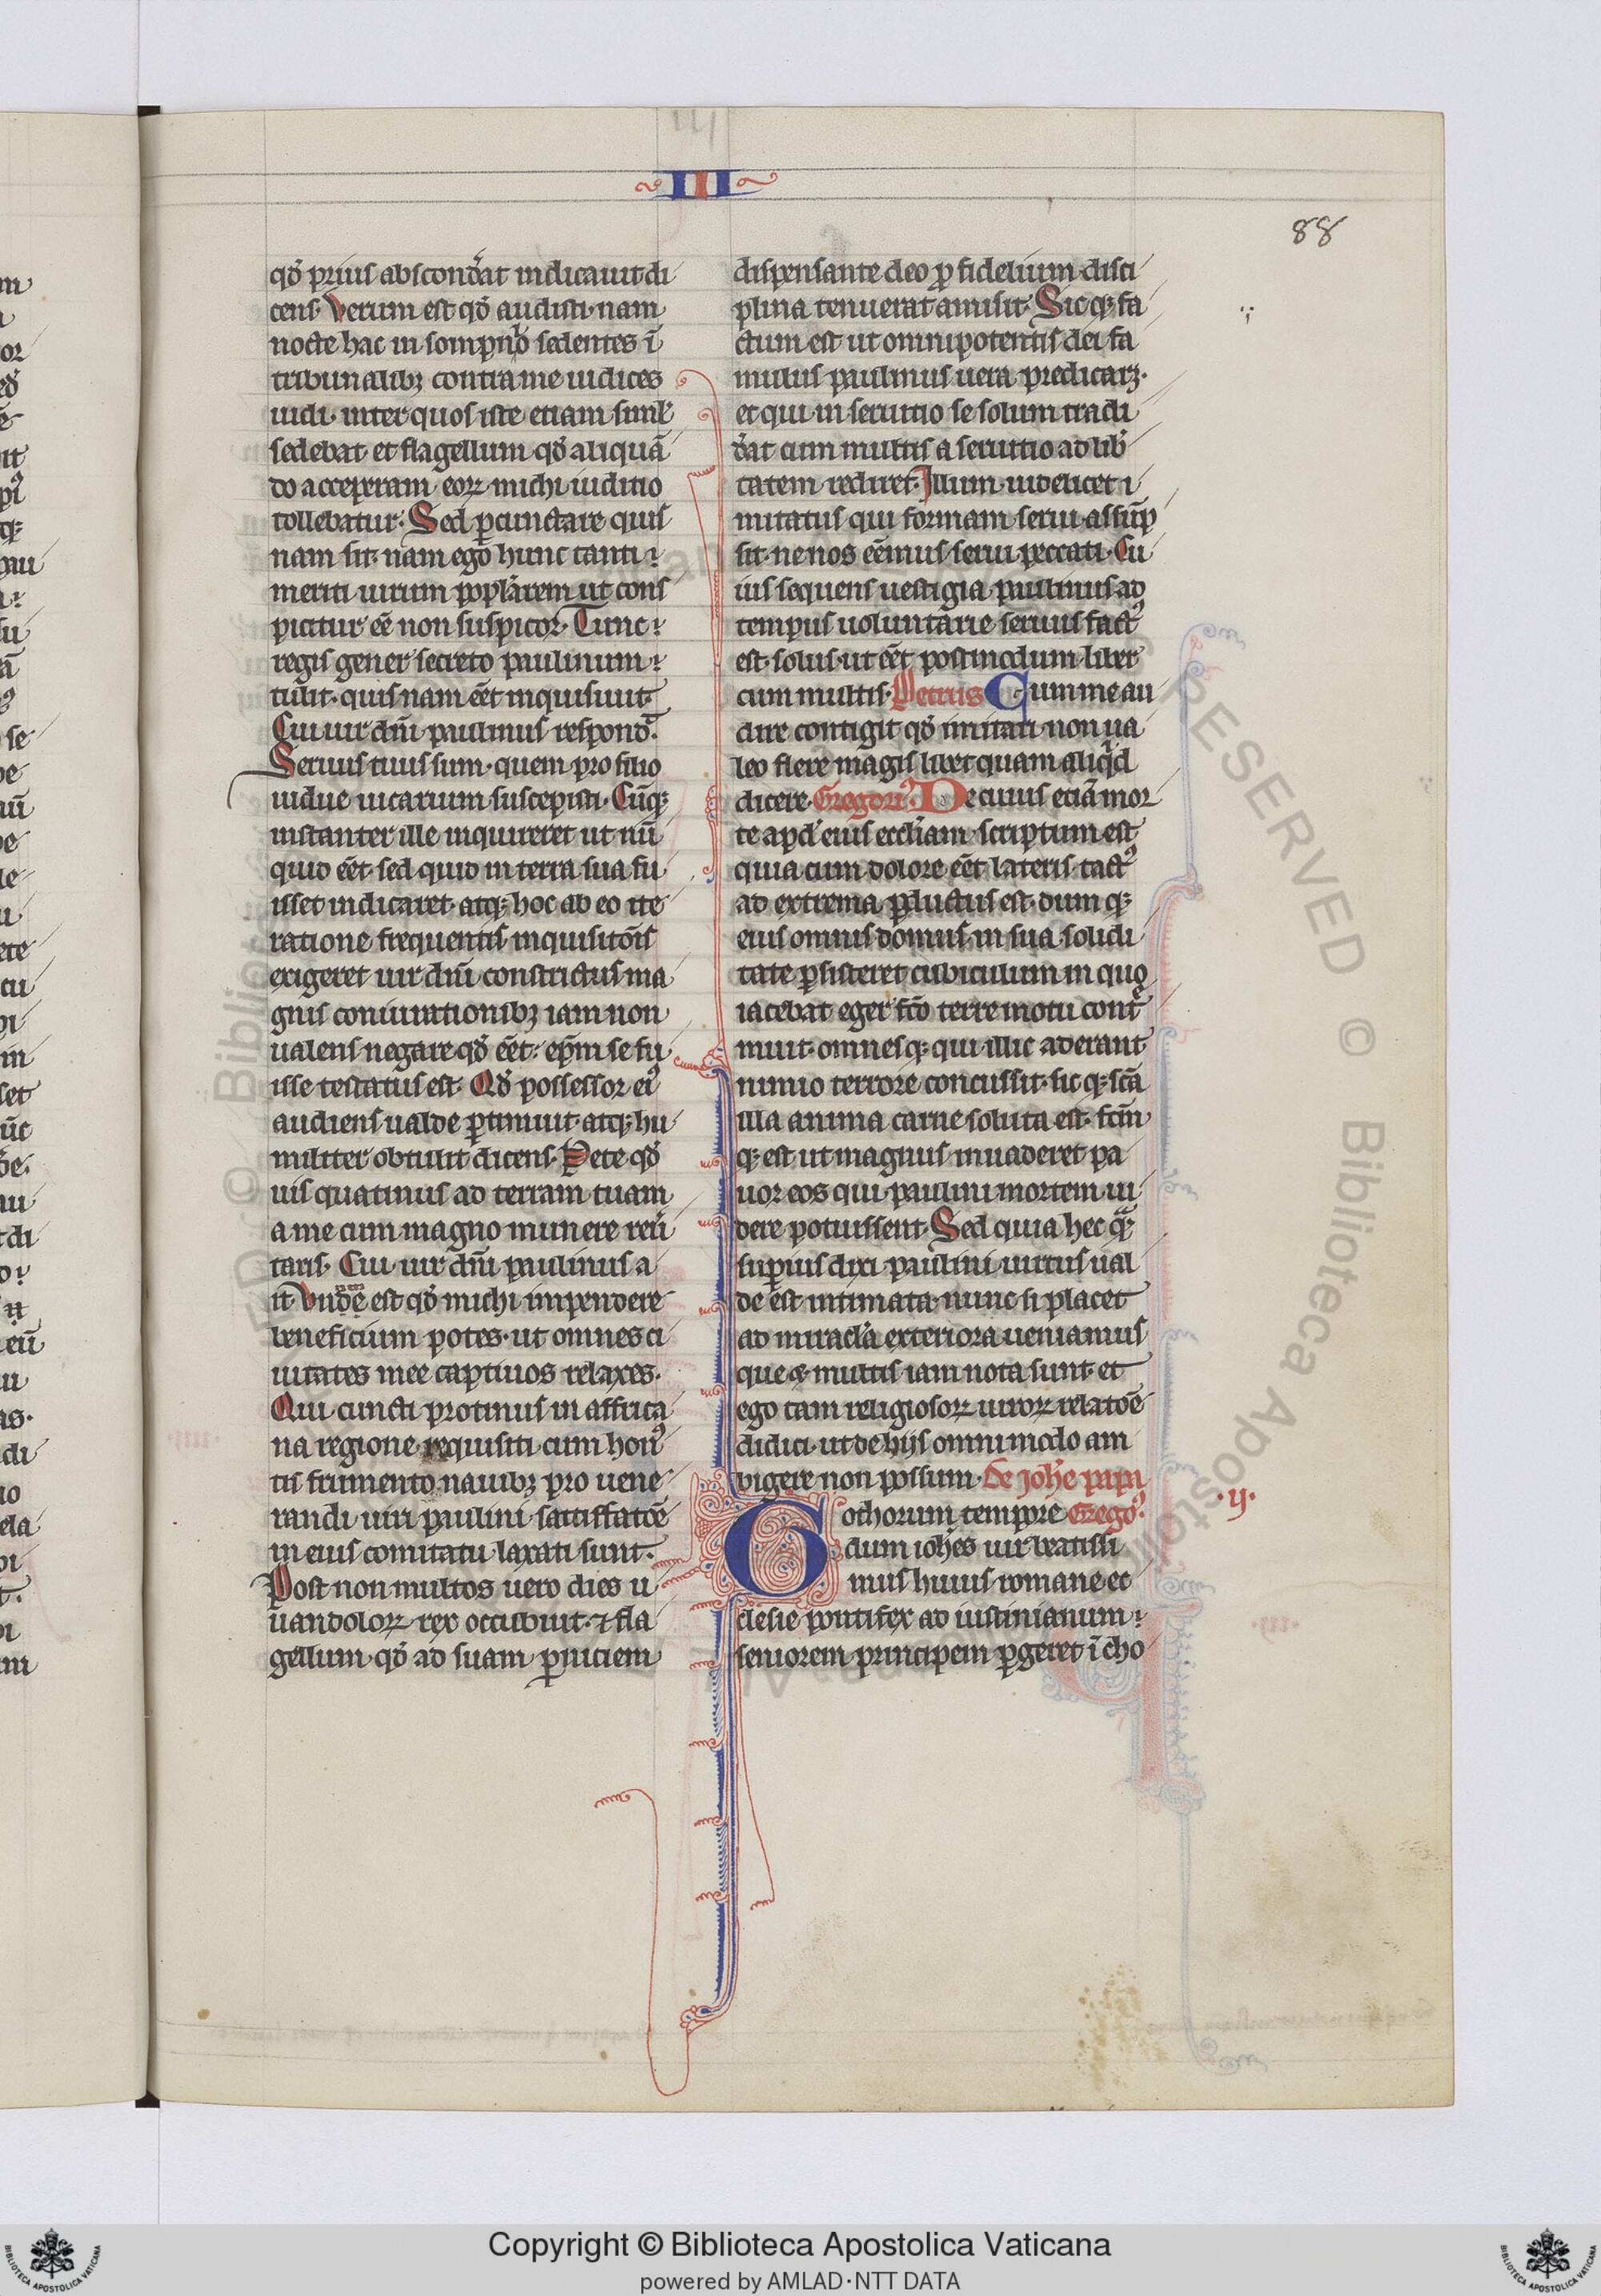 III
88
qđ prius abscond̾at indicauit di
cens. Verum est qđ audisti. nam
nocte hac in sompnìb sedentes ī
tribunalibꝫ contra me iudices
uidi. inter quos iste etiam simł
sedebat. et flagellum qđ aliquā
do acceperam eoꝝ michi iuditio
tollebatur. Sed ꝑcunctare quis
nam sit. nam ego hunc tanti
meriti uirum popłarem ut cons
picitur eē non suspicor. Tunc
regis gener secreto paulinum
tulit. quis nam eēt inquisiuit.
Cui uir dn̄i paulinus respond̾.
Seruus tuus sum. quem pro filio
uidue uicarium suscepisti. Cūqꝫ
instanter ille inquireret ut nū
quid eēt. sed quid in terra sua fu
isset indicaret. atqꝫ hoc ab eo ite
ratione frequentis inquisitōis
exigeret uir dn̄i constrictus ma
gnis coniurationibꝫ iam non
ualens negare qđ eēt. ep̄m se fu
isse testatus est. Qđ possessor eiꝰ
audiens ualde ꝑtimuit. atqꝫ hu
militer obtulit dicens. Pete qđ
uis quatinus ad terram tuam
a me cum magno munere reu̾
taris. Cui uir dn̄i paulinus a
it. Vnū est qđ michi impendere
beneficium potes. ut omnes ci
uitates mee captiuos relaxes.
Qui cuncti protinus in affrica
na regione requisiti. cum honꝰ
tis frumento nauibꝫ pro uene
randi uiri paulini satisfatōe
in eius comitatu laxati sunt.
Post non multos uero dies u
uandoloꝝ rex occubuit. ⁊ fla
gellum qđ ad suam ꝑniciem
dispensante deo ꝓ fidelium disci
plina tenuerat amisit. Sicqꝫ fa
ctum est ut omnipotentis dei fa
mulus paulinus uera predicarꝫ.
et qui in seruitio se solum tradi
d̾at cum multis a seruitio ad lib̾
tatem rediret. Illum uidelicet i
mitatus qui formam serui assūp
sit. ne nos eēmus serui peccati. Cu
ius sequens uestigia paulinus ad
tempus uoluntarie seruus factꝰ
est solus. ut eēt postmodum liber
cum multis. Petrus Cum me au
dire contigit qđ imitari non ua
leo flere magis libet quam aliqid
dicere. Gregoriꝰ. De cuius etiā mor
te apd̾ eius ecctiam scriptum est
quia cum dolore eēt lateris tactꝰ
ad extrema ꝑductus est. dumqꝫ
eius omnis domus in sua solidi
tate ꝑsisteret cubiculum in quo
iacebat eger fc̄o terre motu cont̾
muit. omnesqꝫ qui illic aderant
nimio terrore concussit. sicqꝫ sc̄a
illa anima carne soluta est. fcm̄
qꝫ est ut magnus inuaderet pa
uor eos qui paulini mortem ui
dere potuissent. Sed quia hec qͣꝫ
superius dixi paulini uirtus ual
de est intimata. nunc si placet
ad miracła exteriora ueniamus
que ⁊ multis iam nota sunt. et
ego tam religiosoꝝ uiroꝝ relatōe
didici. ut de hijs omnimodo am
bigere non possum. De ioh̄e papa
.ij.
Gothorum tempore Gregoꝰ.
dum ioh̄es uir beatissi
mus huius romane ec
clesie pontifex ad iustinianum
seniorem principem ꝑgeret ī cho
Copyright © Biblioteca Apostolica Vaticana
powered by AMLAD·NTT DATA